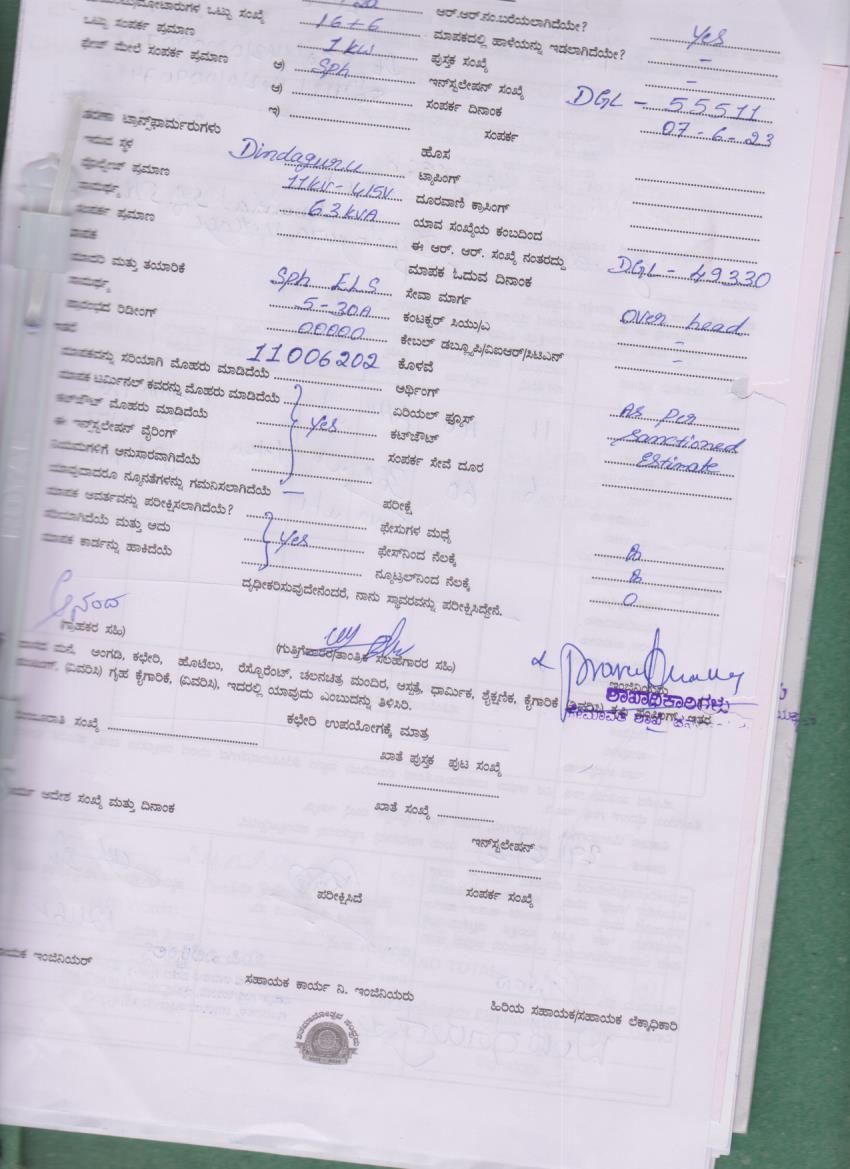 ಆರ್.ಆರ್.ನಂ.ಬರೆಯಲಾಗಿದೆಯೇ? Yes
ಒಟ್ಟು ಸಂಖ್ಯೆ 16+6 ಮಾಪಕದಲ್ಲಿ ಹಾಳೆಯನ್ನು ಇಡಲಾಗಿದೆಯೇ? –
ಒಟ್ಟು ಸಂಪರ್ಕ ಪ್ರಮಾಣ 1 kw ಪುಸ್ತಕ ಸಂಖ್ಯೆ –
ಫೇಸ್ ಮೇಲೆ ಸಂಪರ್ಕ ಪ್ರಮಾಣ ಅ) Sph ಇನ್‌ಸ್ಟಲೇಷನ್ ಸಂಖ್ಯೆ DGL - 55511
ಆ) ಸಂಪರ್ಕ ದಿನಾಂಕ 07-6-23
ಇ) ಸಂಪರ್ಕ
ಟ್ರಾನ್ಸ್‌ಫಾರ್ಮರುಗಳು ಹೊಸ
ಇರುವ ಸ್ಥಳ Dindaguru ಟ್ಯಾಪಿಂಗ್
ವೋಲ್ಟೇಜ್ ಪ್ರಮಾಣ 11kv-415V ದೂರವಾಣಿ ಕ್ರಾಸಿಂಗ್
ಸಾಮರ್ಥ್ಯ 63kVA ಯಾವ ಸಂಖ್ಯೆಯ ಕಂಬದಿಂದ
ಸಂಪರ್ಕ ಪ್ರಮಾಣ ಈ ಆರ್. ಆರ್. ಸಂಖ್ಯೆ ನಂತರದ್ದು DGL - 49330
ಮಾಪಕ ಮಾಪಕ ಓದುವ ದಿನಾಂಕ
ಮಾದರಿ ಮತ್ತು ತಯಾರಿಕೆ Sph ELS ಸೇವಾ ಮಾರ್ಗ Over head
ಸಾಮರ್ಥ್ಯ 5-30A ಕಂಟಕ್ಟರ್ ಸಿಯು/ಎ –
ಪ್ರಾರಂಭದ ರಿಡೀಂಗ್ 00000 ಕೇಬಲ್ ಡಬ್ಲ್ಯೂಪಿ/ವಿಐಆರ್/ಸಿಟಿಎನ್ –
11006202 ಕೊಳವೆ
ಮಾಪಕವನ್ನು ಸರಿಯಾಗಿ ಮೊಹರು ಮಾಡಿದೆಯೆ ಅರ್ಥಿಂಗ್
ಮಾಪಕ ಟರ್ಮಿನಲ್ ಕವರನ್ನು ಮೊಹರು ಮಾಡಿದೆಯೆ ಏರಿಯಲ್ ಫ್ಯೂಸ್ As per
ಕಟ್‌ಔಟ್ ಮೊಹರು ಮಾಡಿದೆಯೆ Yes ಕಟ್‌ಔಟ್ sanctioned
ಈ ಇನ್‌ಸ್ಟಲೇಷನ್ ವೈರಿಂಗ್ ಸಂಪರ್ಕ ಸೇವೆ ದೂರ Estimate
ನಿಯಮಗಳಿಗೆ ಅನುಸಾರವಾಗಿದೆಯೆ
ಯಾವುದಾದರೂ ನ್ಯೂನತೆಗಳನ್ನು ಗಮನಿಸಲಾಗಿದೆಯೆ – ಪರೀಕ್ಷೆ
ಮಾಪಕ ಆವರ್ತವನ್ನು ಪರೀಕ್ಷಿಸಲಾಗಿದೆಯೆ? ಫೇಸುಗಳ ಮಧ್ಯೆ
ಸರಿಯಾಗಿದೆಯೆ ಮತ್ತು ಅದು Yes ಫೇಸ್‌ನಿಂದ ನೆಲಕ್ಕೆ
ಮಾಪಕ ಕಾರ್ಡನ್ನು ಹಾಕಿದೆಯೆ ನ್ಯೂಟ್ರಲ್‌ನಿಂದ ನೆಲಕ್ಕೆ 0
ದೃಢೀಕರಿಸುವುದೇನೆಂದರೆ, ನಾನು ಸ್ಥಾವರವನ್ನು ಪರೀಕ್ಷಿಸಿದ್ದೇನೆ.
ಆನಂದ
(ಗ್ರಾಹಕರ ಸಹಿ) (ಗುತ್ತಿಗೆದಾರರ/ತಾಂತ್ರಿಕ ಸಲಹೆಗಾರರ ಸಹಿ) ಇಂಜಿನಿಯರು
ಶಾಖಾಧಿಕಾರಿಗಳು
ಮನೆ, ಅಂಗಡಿ, ಕಛೇರಿ, ಹೊಟೆಲು, ರೆಸ್ಟೋರೆಂಟ್, ಚಲನಚಿತ್ರ ಮಂದಿರ, ಆಸ್ಪತ್ರೆ, ಧಾರ್ಮಿಕ, ಶೈಕ್ಷಣಿಕ, ಕೈಗಾರಿಕೆ (ವಿವರಿಸಿ) ಕೃಷಿ ಪಂಪಿಂಗ್, ಇತರ
(ವಿವರಿಸಿ) ಗೃಹ ಕೈಗಾರಿಕೆ, (ವಿವರಿಸಿ), ಇದರಲ್ಲಿ ಯಾವುದು ಎಂಬುದನ್ನು ತಿಳಿಸಿರಿ.
ಕಛೇರಿ ಉಪಯೋಗಕ್ಕೆ ಮಾತ್ರ
ಮಂಜೂರಾತಿ ಸಂಖ್ಯೆ ಖಾತೆ ಪುಸ್ತಕ ಪುಟ ಸಂಖ್ಯೆ
ಆದೇಶ ಸಂಖ್ಯೆ ಮತ್ತು ದಿನಾಂಕ ಖಾತೆ ಸಂಖ್ಯೆ
ಇನ್‌ಸ್ಟಲೇಷನ್
ಪರೀಕ್ಷಿಸಿದೆ ಸಂಪರ್ಕ ಸಂಖ್ಯೆ
ಇಂಜಿನಿಯರ್ ಸಹಾಯಕ ಕಾರ್ಯ ನಿ. ಇಂಜಿನಿಯರು ಹಿರಿಯ ಸಹಾಯಕ/ಸಹಾಯಕ ಲೆಕ್ಕಾಧಿಕಾರಿ